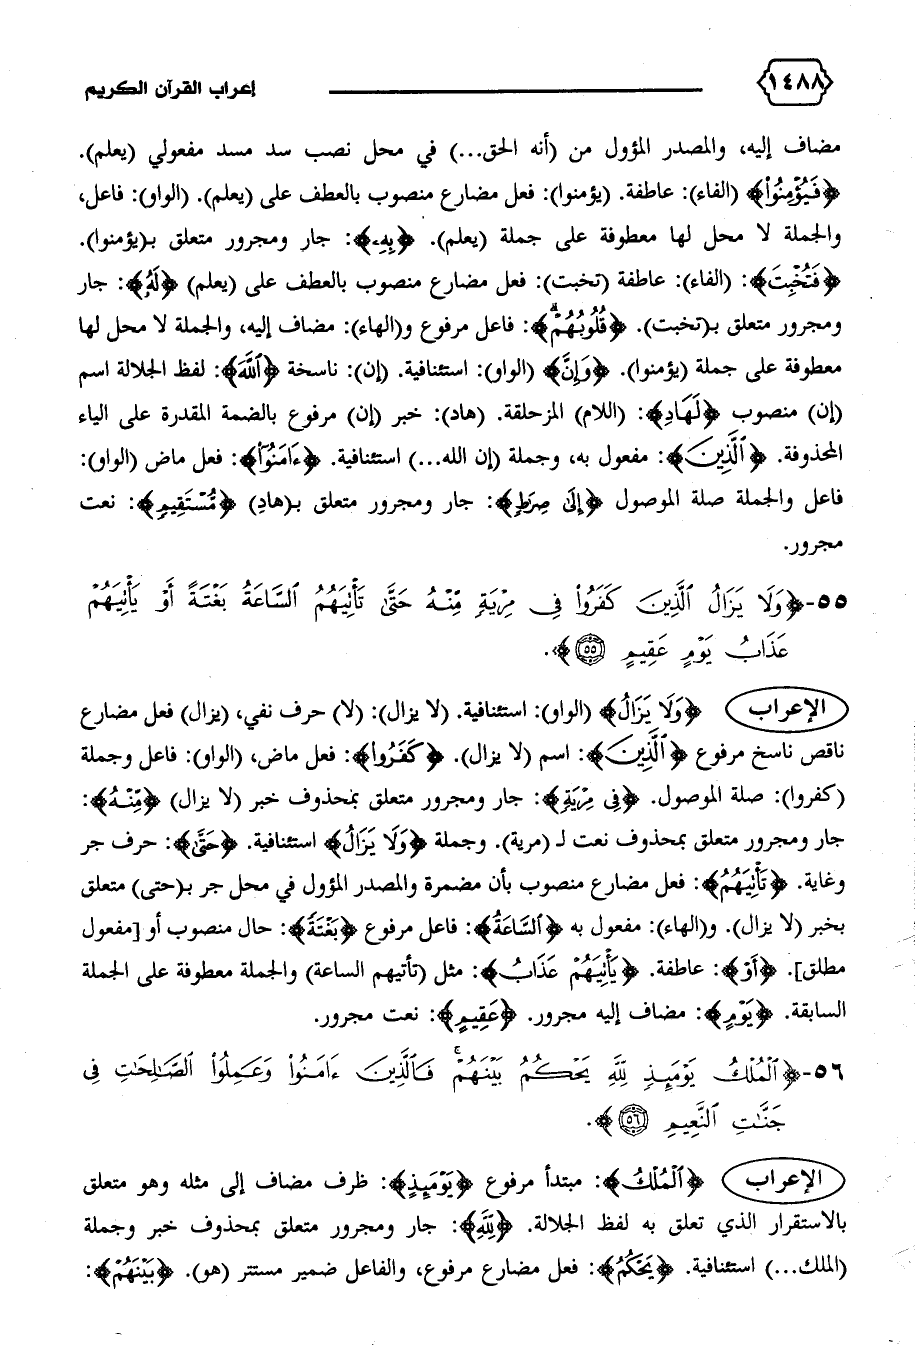 ١٤٨٨ إعراب القرآن الكريم
مضاف إليه، والمصدر المؤول من (أنه الحق...) في محل نصب سد مسد مفعولي (يعلم).
﴿فَيُؤْمِنُوا۟﴾ (الفاء): عاطفة. (يؤمنوا): فعل مضارع منصوب بالعطف على (يعلم). (الواو): فاعل،
والجملة لا محل لها معطوفة على جملة (يعلم). ﴿بِهِۦ﴾: جار ومجرور متعلق بـ(يؤمنوا).
﴿فَتُخْبِتَ﴾: (الفاء): عاطفة (تخبت): فعل مضارع منصوب بالعطف على (يعلم) ﴿لَهُۥ﴾: جار
ومجرور متعلق بـ(تخبت). ﴿قُلُوبُهُمْ ۗ﴾: فاعل مرفوع و(الهاء): مضاف إليه، والجملة لا محل لها
معطوفة على جملة (يؤمنوا). ﴿وَإِنَّ﴾ (الواو): استئنافية. (إن): ناسخة ﴿ٱللَّهَ﴾: لفظ الجلالة اسم
(إن) منصوب ﴿لَهَادِ﴾: (اللام) المزحلقة. (هاد): خبر (إن) مرفوع بالضمة المقدرة على الياء
المحذوفة. ﴿ٱلَّذِينَ﴾: مفعول به، وجملة (إن الله...) استئنافية. ﴿ءَامَنُوٓا۟﴾: فعل ماض (الواو):
فاعل والجملة صلة الموصول ﴿إِلَىٰ صِرَٰطٍ﴾: جار ومجرور متعلق بـ(هادِ) ﴿مُّسْتَقِيمٍ﴾: نعت
مجرور.
٥٥-﴿وَلَا يَزَالُ ٱلَّذِينَ كَفَرُوا۟ فِى مِرْيَةٍ مِّنْهُ حَتَّىٰ تَأْتِيَهُمُ ٱلسَّاعَةُ بَغْتَةً أَوْ يَأْتِيَهُمْ
عَذَابُ يَوْمٍ عَقِيمٍ ٥٥﴾.
الإعراب ﴿وَلَا يَزَالُ﴾ (الواو): استئنافية. (لا يزال): (لا) حرف نفي، (يزال) فعل مضارع
ناقص ناسخ مرفوع ﴿ٱلَّذِينَ﴾: اسم (لا يزال). ﴿كَفَرُوا۟﴾: فعل ماض، (الواو): فاعل وجملة
(كفروا): صلة الموصول. ﴿فِى مِرْيَةٍ﴾: جار ومجرور متعلق بمحذوف خبر (لا يزال) ﴿مِّنْهُ﴾:
جار ومجرور متعلق بمحذوف نعت لـ (مرية). وجملة ﴿وَلَا يَزَالُ﴾ استئنافية. ﴿حَتَّىٰ﴾: حرف جر
وغاية. ﴿تَأْتِيَهُمُ﴾: فعل مضارع منصوب بأن مضمرة والمصدر المؤول في محل جر بـ(حتى) متعلق
بخبر (لا يزال). و(الهاء): مفعول به ﴿ٱلسَّاعَةُ﴾: فاعل مرفوع ﴿بَغْتَةً﴾: حال منصوب أو [مفعول
مطلق]. ﴿أَوْ﴾: عاطفة. ﴿يَأْتِيَهُمْ عَذَابُ﴾: مثل (تأتيهم الساعة) والجملة معطوفة على الجملة
السابقة. ﴿يَوْمٍ﴾: مضاف إليه مجرور. ﴿عَقِيمٍ﴾: نعت مجرور.
٥٦-﴿ٱلْمُلْكُ يَوْمَئِذٍ لِّلَّهِ يَحْكُمُ بَيْنَهُمْ ۚ فَٱلَّذِينَ ءَامَنُوا۟ وَعَمِلُوا۟ ٱلصَّٰلِحَٰتِ فِى
جَنَّٰتِ ٱلنَّعِيمِ ٥٦﴾.
الإعراب ﴿ٱلْمُلْكُ﴾: مبتدأ مرفوع ﴿يَوْمَئِذٍ﴾: ظرف مضاف إلى مثله وهو متعلق
بالاستقرار الذي تعلق به لفظ الجلالة. ﴿لِّلَّهِ﴾: جار ومجرور متعلق بمحذوف خبر وجملة
(الملك...) استئنافية. ﴿يَحْكُمُ﴾: فعل مضارع مرفوع، والفاعل ضمير مستتر (هو). ﴿بَيْنَهُمْ﴾: